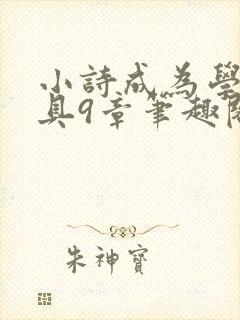 小詩成為學
具9章筆趣閣
朱神寶